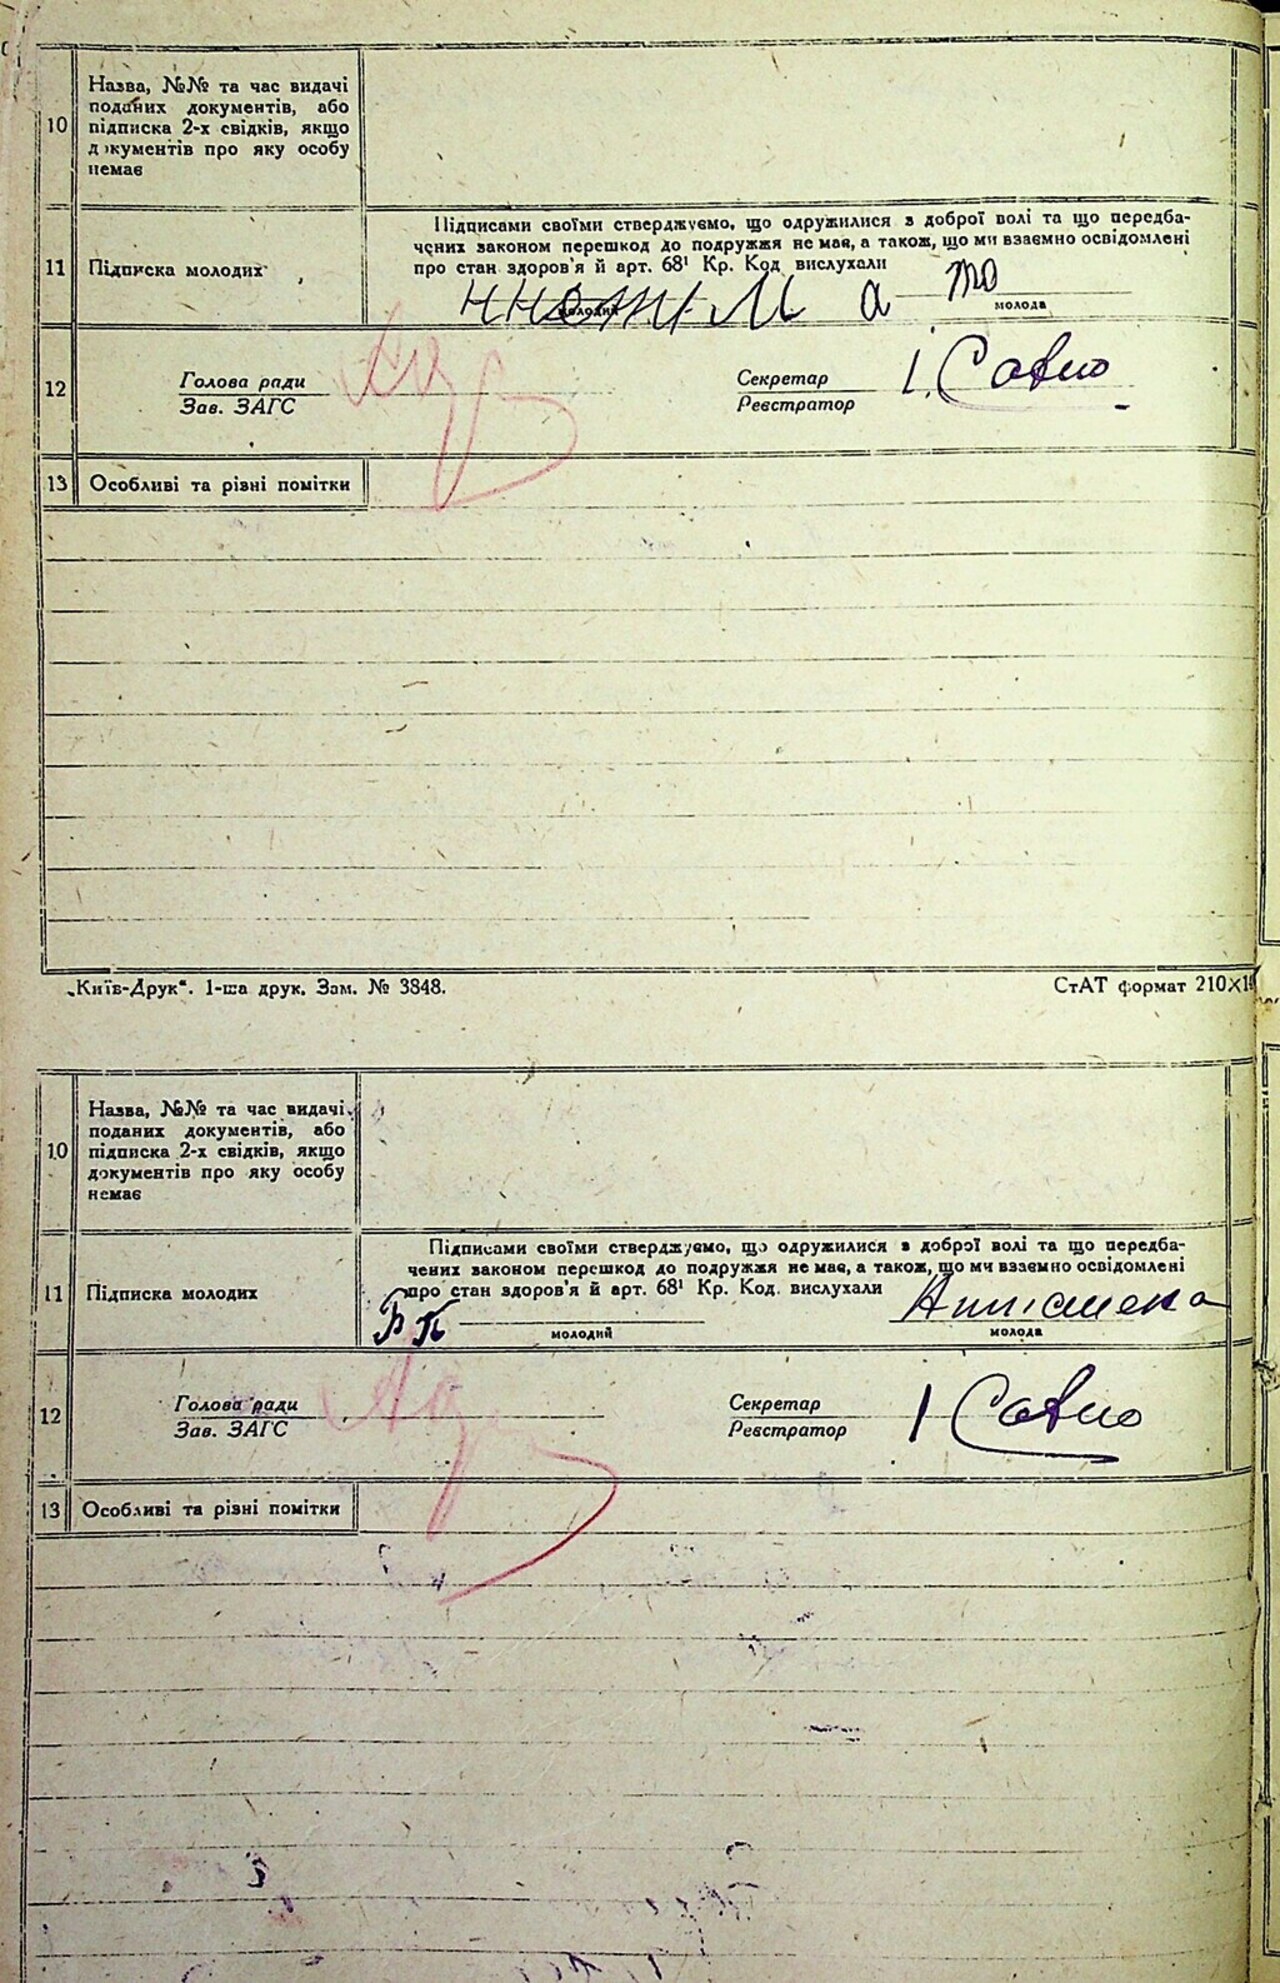 10
Назва, №№ та час видачі
поданих документів, або
підписка 2-х свідків, якщо
документів про яку особу
немає
11
Підписка молодих
Підписами своїми стверджуємо, що одружилися з доброї волі та що передба-
чених законом перешкод до подружжя не має, а також, що ми взаємно освідомлені
про стан здоров'я й арт. 68¹ Кр. Код. вислухали
молодий
молода
12
Голова ради
Зав. ЗАГС
Секретар
Реєстратор
І. Савно
13
Особливі та різні помітки
„Київ-Друк“. 1-ша друк. Зам. № 3848.
СтАТ формат 210×1
10
Назва, №№ та час видачі
поданих документів, або
підписка 2-х свідків, якщо
документів про яку особу
немає
11
Підписка молодих
Підписами своїми стверджуємо, що одружилися з доброї волі та що передба-
чених законом перешкод до подружжя не має, а також, що ми взаємно освідомлені
про стан здоров'я й арт. 68¹ Кр. Код. вислухали
молодий
молода
12
Голова ради
Зав. ЗАГС
Секретар
Реєстратор
І Савно
13
Особливі та різні помітки